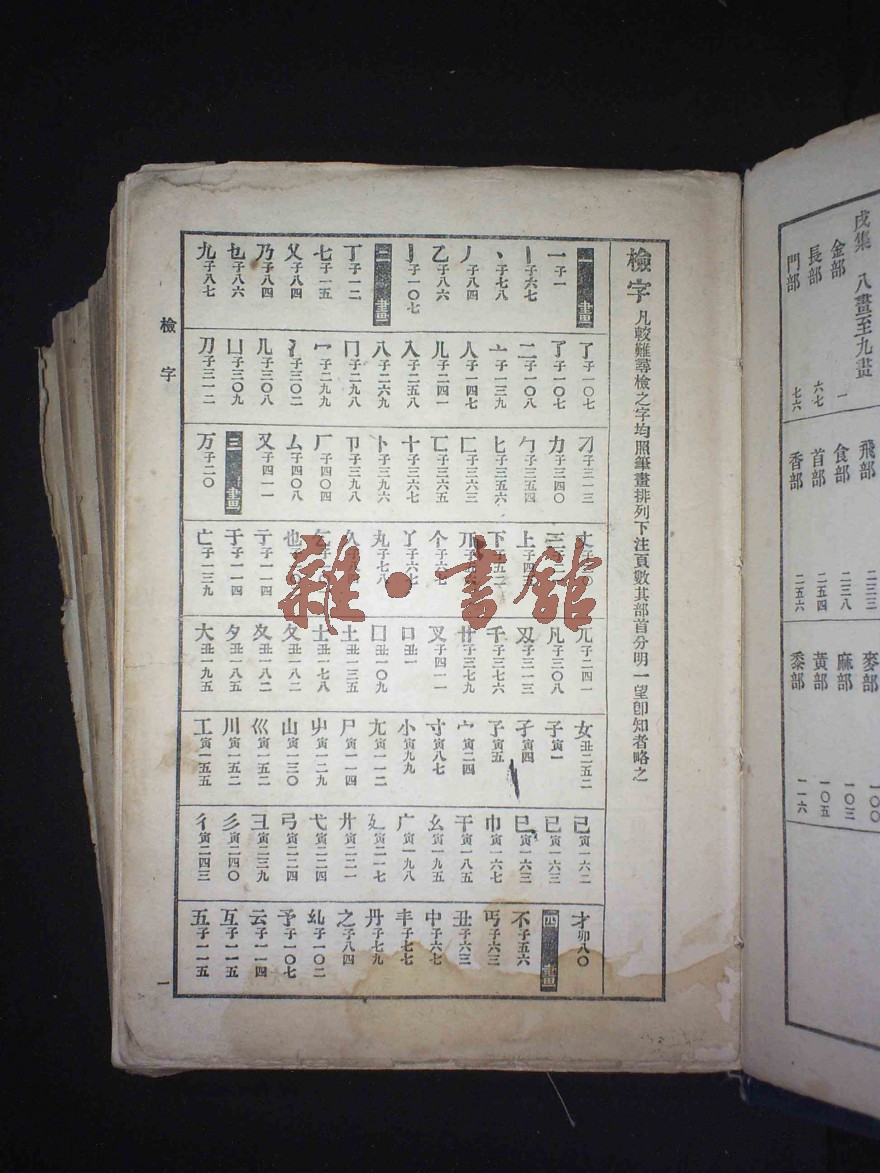 檢字 凡較難尋檢之字均照筆畫排列下注頁數其部首分明一望卽知者略之
一畫
一子一
丨子六七
丶子七八
丿子八四
乙子八六
亅子一〇七
二畫
丁子一二
七子一五
乂子八四
乃子八四
乜子八六
九子八七
了子一〇七
二子一〇八
亠子一三九
人子一四七
儿子二四一
入子二五八
八子二六九
冂子二九八
冖子二九九
冫子三〇二
几子三〇八
凵子三〇九
刀子三一二
刁子三一三
力子三四〇
勹子三五四
匕子三五六
匚子三六三
匸子三六五
十子三六七
卜子三九六
卩子三九八
厂子四〇四
厶子四〇八
又子四一一
三畫
万子二〇
丈
三
上子四
下子五二
丌
个子六七
丫子六七
丸子七八
久子八
乞子
也子
亍子一一四
于子一一四
亡子一三九
兀子二四一
凡子三〇八
刄子三一三
千子三七六
廿子三七九
叉子四一一
口丑一
囗丑一〇九
土丑一三五
士丑一七八
夂丑一八二
夊丑一八二
夕丑一八五
大丑一九五
女丑二五二
子寅一
孑寅四
孓寅五
宀寅二四
寸寅八七
小寅九九
尢寅一一二
尸寅一一四
屮寅一二九
山寅一三〇
巛寅一五二
川寅一五二
工寅一五五
己寅一六二
已寅一六三
巳寅一六三
巾寅一六七
干寅一八五
幺寅一九五
广寅一九八
廴寅二一七
廾寅二二一
弋寅二二四
弓寅二二四
彐寅二三九
彡寅二四〇
彳寅二四三
才卯八〇
四畫
不子五六
丏子六三
丑子六三
中子六七
丰子七七
丹子七九
之子八四
乣子一〇二
予子一〇七
云子一一四
互子一一五
五子一一五
檢字
一
雜·書舘
戌集 八畫至九畫
金部 一
長部 六七
門部 七六
飛部 二三三
食部 二三八
首部 二五四
香部 二五六
麥部 一〇〇
麻部 一〇三
黃部 一〇五
黍部 一一六